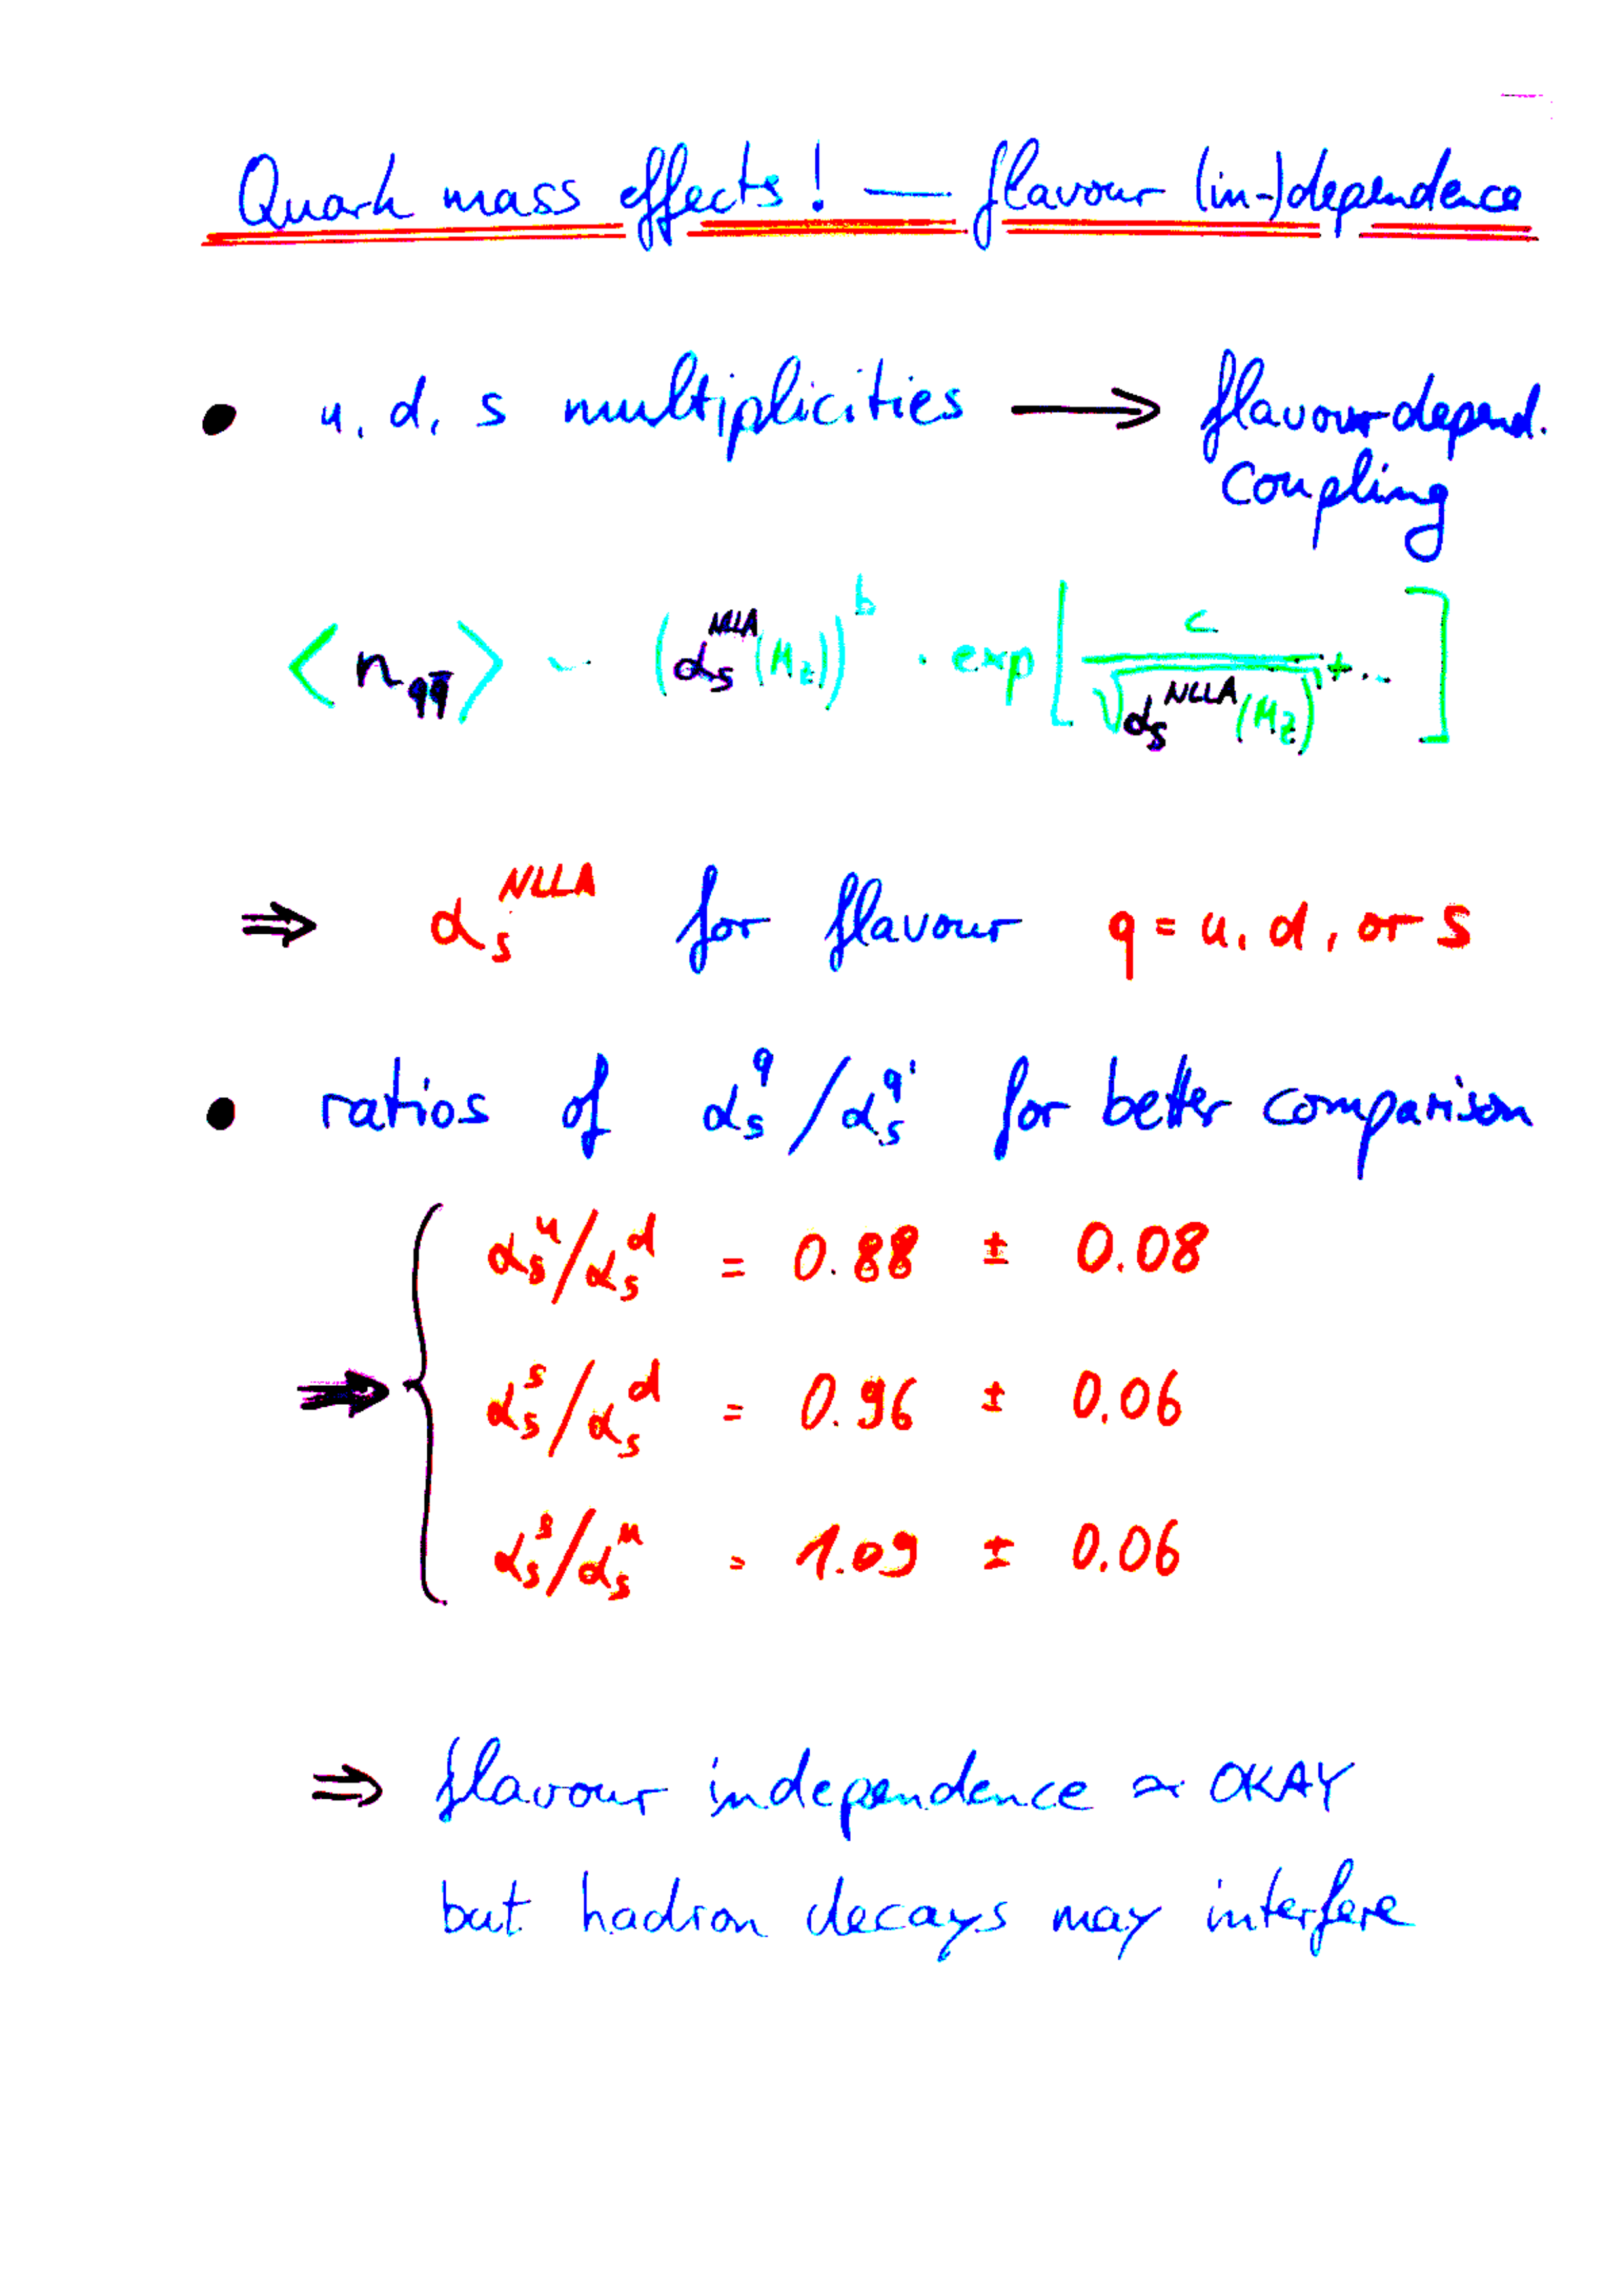 Quark mass effects! — flavour (in-)dependence
• u, d, s multiplicities ⟶ flavour-depend.
coupling
⟨n_{q\bar{q}}⟩ ~ (α_s^{NLLA}(M_Z))^b · exp[ c / √(α_s^{NLLA}(M_Z)) + .. ]
⇒ α_s^{NLLA} for flavour q = u, d, or s
• ratios of α_s^q / α_s^{q'} for better comparison
α_s^u / α_s^d = 0.88 ± 0.08
⇒ { α_s^s / α_s^d = 0.96 ± 0.06
α_s^s / α_s^u = 1.09 ± 0.06
⇒ flavour independence ≃ OKAY
but hadron decays may interfere